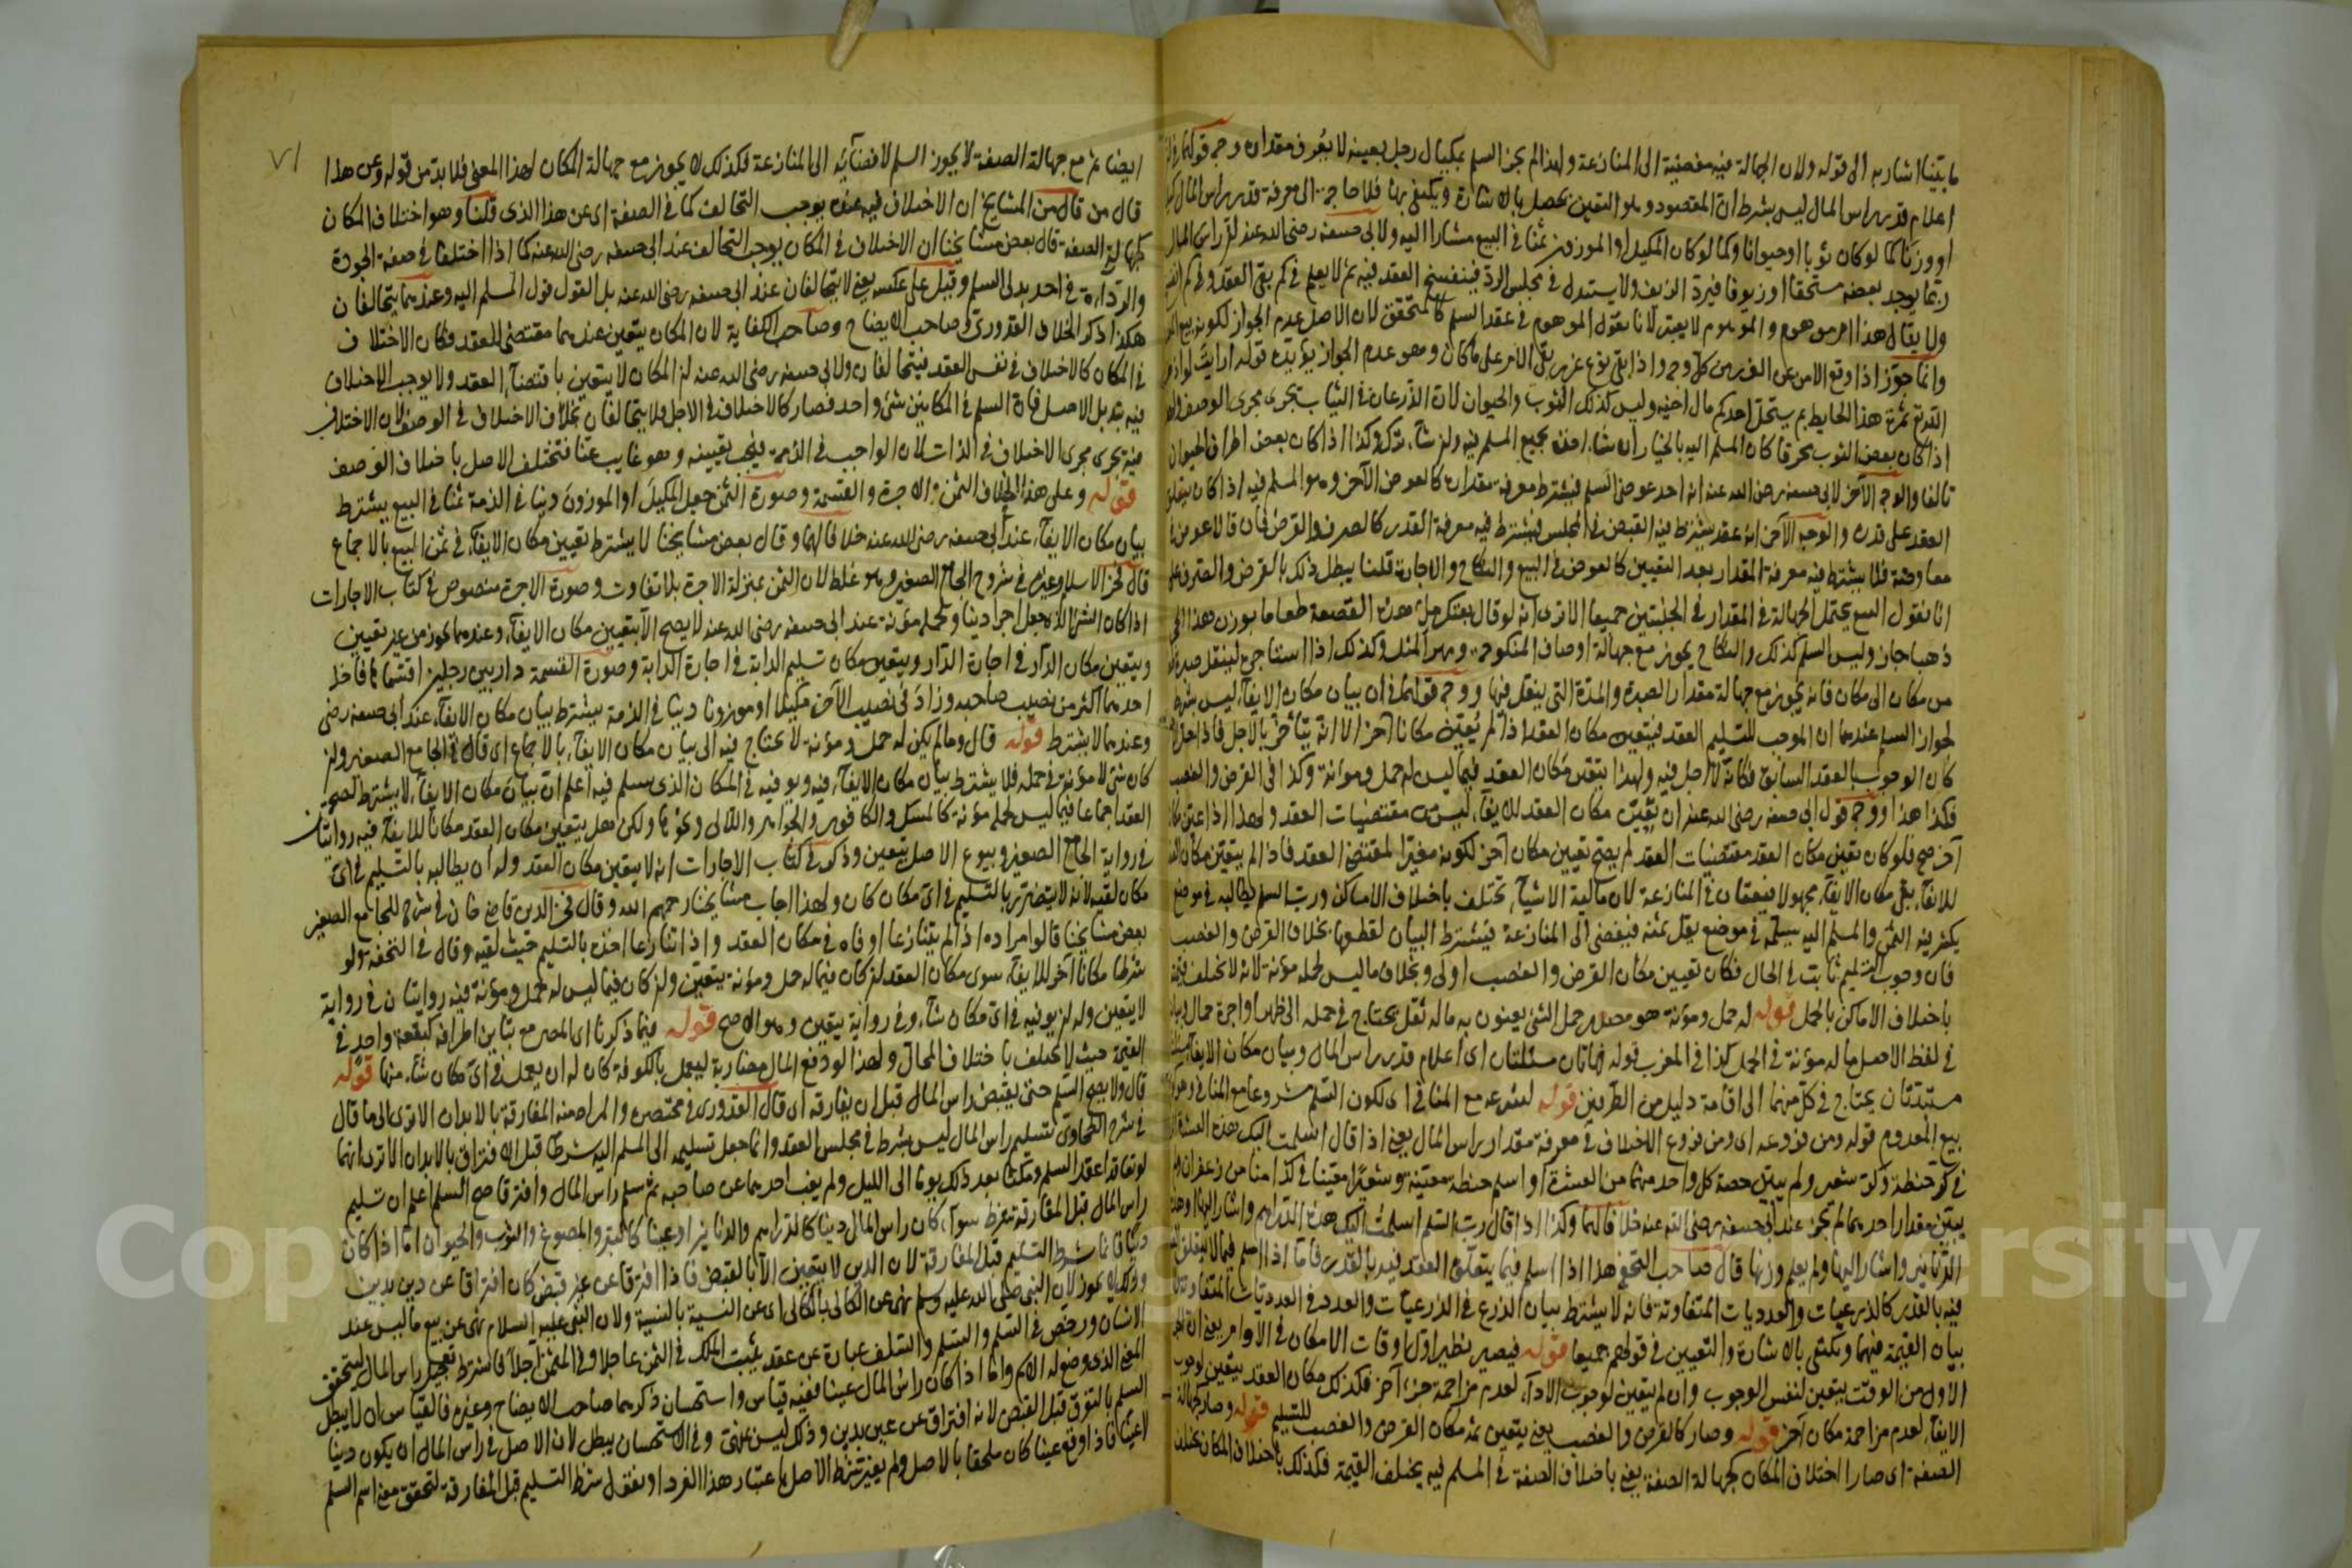 ما بيّنا اشار به الى قوله ولان الجهالة فيه مفضية الى المنازعة ولهذا لم يجز السلم بمكيال رجل بعينه لا يعرف مقداره وجه قولهما في
اعلام قدر راس المال ليس بشرط ان المقصود وهو التعيين يحصل بالاشارة ويكتفى بها فلا حاجة الى معرفة قدر راس المال
او وزنا كما لو كان ثوبا او حيوانا وكما لو كان المكيل او الموزون ثمنا في البيع مشارا اليه ولابي حنيفه رضى الله عنه ان راس المال
ربما يوجد بعضه مستحقا او زيوفا فيرد الزيف ولا يستبدل في مجلس الرد فينفسخ العقد فيه ثم لا يعلم في كم بقي العقد وفي كم
ولا يقال هذا امر موهوم والموهوم لا يعتبر لانا نقول الموهوم في عقد السلم كالمتحقق لان الاصل عدم الجواز لكونه بيع
وانما جوّز اذا وقع الامن عن الغرر من كل وجه واذا بقي نوع غرر بقي الامر على ما كان وهو عدم الجواز يؤيده قوله ارايت لو
الله ثمرة هذا الحايط بم يستحل احدكم مال اخيه وليس كذلك الثوب والحيوان لان الذرعان في الثياب تجرى مجرى الوصف
اذا كان بعض الثوب كان المسلم اليه بالخيار ان شاء اخذ بجميع المسلم فيه وان شاء ترك وكذا اذا كان بعض اطراف الحيوان
تالفا والوجه الآخر لابي حنيفه رضى الله عنه انه احد عوضى السلم فيشترط معرفة مقداره كالعوض الآخر وهو المسلم فيه اذا كان يتعلق
العقد على قدره والوجه الآخر انه عقد يشترط فيه القبض في المجلس فيشترط فيه معرفة القدر كالصرف والقرض فان قال
معاوضة فلا يشترط فيه معرفة المقدار بعد التعيين كالعوض في البيع والنكاح والاجارة قلنا يبطل ذلك بالقرض والصرف
انا نقول البيع يحتمل الجهالة في المقدار في الجنبتين جميعا الا ترى انه لو قال بعتك ملء هذه القصعة طعاما بوزن هذا
ذهبا جاز وليس السلم كذلك والنكاح يجوز مع جهالة اوصاف المنكوحة ومهر المثل وكذلك اذا استاجر لينقل صبرة
من مكان الى مكان فانه يجوز مع جهالة مقدار الصبرة والمدة التي ينقل فيها ووجه قولهما في ان بيان مكان الايفاء ليس بشرط
لجواز السلم عندهما ان الموجب للتسليم العقد فيتعين مكان العقد اذا لم يعيّن مكانا آخر الا انه يتأخر بالاجل فاذا حل
كان الوجوب بالعقد السابق فكانه لا اجل فيه ولهذا يتعين مكان العقد فيما ليس له حمل ومؤنة وكذا في القرض والغصب
فكذا هذا ووجه قول ابي حنيفه رضى الله عنه ان تعيّن مكان العقد للايفاء ليس من مقتضيات العقد ولهذا اذا عين
آخر صح فلو كان تعين مكان العقد مقتضيات العقد لم يصح تعيين مكان آخر لكونه مغيّرا لمقتضى العقد فاذا لم يتعيّن مكان
للايفاء بقى مكان الايفاء مجهولا فيقعان في المنازعة لان مالية الاشياء تختلف باختلاف الاماكن ورب السلم يطالبه في موضع
يكثر فيه الثمن والمسلم اليه يسلمه في موضع يقل ثمنه فيفضى الى المنازعة فيشترط البيان لقطعها بخلاف القرض والغصب
فان وجوب التسليم ثابت في الحال فكان تعيين مكان القرض والغصب اولى وبخلاف ما ليس لحمله مؤنة لانه لا تختلف قيمة
باختلاف الاماكن بالحمل قوله له حمل ومؤنة هو مصدر حمل الشئ يعنون به ماله ثقل يحتاج في حمله الى ظهر او اجرة حمال
في لفظ الاصل ما له مؤنة في الحمل كذا في المغرب قوله فهاتان مسئلتان اى اعلام قدر راس المال وبيان مكان الايفاء
مبتدئتان يحتاج في كل منهما الى اقامة دليل من الطرفين قوله لشرعه مع المنافي اى لكون السلم مشروعا مع المنافي وهو
بيع المعدوم قوله ومن فروعه اى ومن فروع الاختلاف في معرفة مقدار راس المال يعني اذا قال اسلمت اليك هذه العشرة
في كر حنطة وكر شعير ولم يبيّن حصة كل واحد منهما من العشرة او اسلم حنطة معيّنة وشعيرا معيّنا في كذا منا من زعفران
يبيّن مقدار احدهما لم يجز عند ابي حنيفه رضى الله عنه خلافا لهما وكذا اذا قال رب السلم اسلمت اليك هذه الدراهم واشار اليها
الدنانير واشار اليها ولم يعلم وزنها قال صاحب التحفة هذا اذا اسلم فيما يتعلق العقد فيه بالقدر فاما اذا اسلم فيما لا يتعلق
فيه بالقدر كالذرعيات والعدديات المتفاوتة فانه لا يشترط بيان الذرع في الذرعيات والعدد في العدديات المتفاوتة
بيان القيمة فيهما ويكتفى بالاشارة والتعيين في قولهم جميعا قوله فيصير نظير اول اوقات الامكان في الاوامر يعني ان
الاول من الوقت يتعين لنفس الوجوب وان لم يتعين لوجوب الاداء لعدم مزاحمة جزء آخر فكذلك مكان العقد يتعين لوجوب
الايفاء لعدم مزاحمة مكان آخر قوله وصار كالقرض والغصب يعني يتعين ثمة مكان القرض والغصب للتسليم قوله وصار كجهالة
الصفة اى صار اختلاف المكان كجهالة الصفة يعني باختلاف الصفة في المسلم فيه يختلف القيمة فكذلك باختلاف المكان
٧١
ايضا ثم مع جهالة الصفة لا يجوز السلم لافضائه الى المنازعة فكذلك لا يجوز مع جهالة المكان لهذا المعنى فلا بد من قوله وعن هذا
قال من قال من المشايخ ان الاختلاف فيه عنده يوجب التحالف كما في الصفة اى عن هذا الذى قلنا وهو اختلاف المكان
كجهالة الصفة قال بعض مشايخنا ان الاختلاف في المكان يوجب التحالف عند ابي حنيفه رضى الله عنه كما اذا اختلفا في صفة الجودة
والرداءة في احد بدلى السلم وقيل على عكسه يعني لا يتحالفان عند ابي حنيفه رضى الله عنه بل القول قول المسلم اليه وعندهما يتحالفان
هكذا ذكر الخلاف القدورى وصاحب الايضاح وصاحب الكفاية لان المكان يتعين عندهما مقتضى للعقد فكان الاختلاف
في المكان كالاختلاف في نفس العقد فيتحالفان ولابي حنيفه رضى الله عنه ان المكان لا يتعين باقتضاء العقد ولا يوجب الاختلاف
فيه تبدل الاصل فان السلم في المكانين شئ واحد فصار كالاختلاف في الاجل ولا يتحالفان بخلاف الاختلاف في الوصف لان الاختلاف
فيه يجرى مجرى الاختلاف في الذات لان الواجب في الذمة يجب تعيينه وهو غايب عنا فتختلف الاصل باختلاف الوصف
قوله وعلى هذا الخلاف الثمن والاجرة والقسمة وصورة الثمن جعل المكيل او الموزون دينا في الذمة ثمنا في البيع يشترط
بيان مكان الايفاء عند ابي حنيفه رضى الله عنه خلافا لهما وقال بعض مشايخنا لا يشترط تعيين مكان الايفاء في ثمن البيع بالاجماع
قال فخر الاسلام وغيره في شروح الجامع الصغير وهو غلط لان الثمن بمنزلة الاجرة بلا تفاوت وصورة الاجرة منصوص في كتاب الاجارات
اذا كان الشئ الذى جعل اجرا دينا وحمله مؤنة عند ابي حنيفه رضى الله عنه لا يصح الا بتعيين مكان الايفاء وعندهما يجوز من غير تعيين
ويتعين مكان الدار في اجارة الدار ويتعين مكان تسليم الدابة في اجارة الدابة وصورة القسمة دار بين رجلين اقتسماها فاخذ
احدهما اكثر من نصيب صاحبه وزاد في نصيب الآخر مكيلا او موزونا دينا في الذمة يشترط بيان مكان الايفاء عند ابي حنيفه رضى
وعندهما لا يشترط قوله قال وما لم يكن له حمل ومؤنة لا يحتاج فيه الى بيان مكان الايفاء بالاجماع اى قال في الجامع الصغير وان
كان شئ لا مؤنة في حمله فلا يشترط بيان مكان الايفاء فيه ويوفيه في المكان الذى يسلم فيه اعلم ان بيان مكان الايفاء لا يشترط لصحة
العقد اجماعا فيما ليس لحمله مؤنة كالمسك والكافور والجواهر واللآلى ونحوها ولكن هل يتعين مكان العقد مكانا للايفاء فيه روايتان
في رواية الجامع الصغير وبيوع الاصل يتعين وذكر في كتاب الاجارات انه لا يتعين مكان العقد وله ان يطالبه بالتسليم في اى
مكان لقيه لانه لا يتضرر بالتسليم في اى مكان كان ولهذا اجاب مشايخنا رحمهم الله وقال فخر الدين قاضى خان في شرحه للجامع الصغير
بعض مشايخنا قالوا مراده اذا لم يتنازعا اوفاه في مكان العقد واذا تنازعا اخذه بالتسليم حيث لقيه وقال في التحفة ولو
شرطا مكانا آخر للايفاء سوى مكان العقد ان كان فيما له حمل ومؤنة يتعيّن وان كان فيما ليس له حمل ومؤنة فيه روايتان في رواية
لا يتعين وله ان يوفيه في اى مكان شاء وفي رواية يتعين وهو الاصح قوله فيما ذكرنا اى المصر مع تباين اطرافه كبقعة واحدة في
القيمة حيث لا تختلف باختلاف المحال ولهذا لو دفع المال مضاربة ليعمل بالكوفة كان له ان يعمل في اى مكان شاء منها قوله
قال ولا يصح السلم حتى يقبض راس المال قبل ان يفارقه اى قال القدورى في مختصره والمراد منه المفارقة بالابدان الا ترى الى ما قال
في شرح الطحاوى تسليم راس المال ليس بشرط في مجلس العقد وانما جعل تسليمه الى المسلم اليه شرطا قبل الافتراق بالابدان الا ترى انهما
لو تعاقدا عقد السلم ومكثا بعد ذلك يوما الى الليل ولم يغب احدهما عن صاحبه ثم سلم راس المال وافترقا صح السلم اعلم ان تسليم
راس المال قبل المفارقة شرط سواء كان راس المال دينا كالدراهم والدنانير او عينا كالتبر والمصوغ والثوب والحيوان اما اذا كان
دينا فانما شرط التسليم قبل المفارقة لان الدين لا يتعين الا بالقبض فاذا افترقا عن غير قبض كان افتراقا عن دين بدين
وذلك لا يجوز لان النبي صلى الله عليه وسلم نهى عن الكالى بالكالى اى عن النسية بالنسية ولان النبي عليه السلام نهى عن بيع ما ليس عند
الانسان ورخص في السلم والسلم والسلف عبارة عن عقد يثبت الملك في الثمن عاجلا وفي المثمن آجلا فاشترط تعجيل راس المال ليتحقق
المعنى الذى وضع له الاسم واما اذا كان راس المال عينا ففيه قياس واستحسان ذكرهما صاحب الايضاح وغيره فالقياس ان لا يبطل
السلم بالتفرق قبل القبض لانه افتراق عن عين بدين وذلك ليس بمنهى وفي الاستحسان يبطل لان الاصل في راس المال ان يكون دينا
لا عينا فاذا وقع عينا كان ملحقا بالاصل ولم يعتبر شرط الاصل باعتبار هذا الفرد او نقول شرط التسليم قبل المفارقة لتحقق معنى اسم السلم